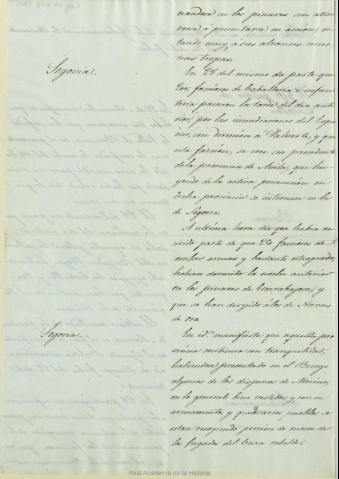 mandará en los pinares sin atre
verse á presentarse en accion, es
tando muy á sus alcances nues
tras tropas.
Segovia.
En 28 del mismo da parte que
200 faciosos de caballeria é infan
teria pasaron la tarde del dia ante
rior, por las inmediaciones del Espi
nar, con direccion á Valverde, y que
esta faccion, se cree sea procedente
de la provincia de Avila, que hu
yendo de la activa persecucion en
dicha provincia se internan en la
de Segovia.
A ultima hora dice que habia re
cibido parte de que 250 faciosos de
ambas armas y bastante estropeados,
habian dormido la noche anterior
en los pinares de Escarabajosa, y
que se han dirijido á los de Navas
de oro.
Segovia.
En id.ⁿ manifiesta que aquella pro
vincia continua con tranquilidad,
habiendo presentado en el Burgo
algunos de los dispersos de Merino,
en lo general bien vestidos y con
armamento, y que varios pueblos
estan recogiendo porcion de reses de
la fugada del Cura rebelde.
Real Academia de la Historia